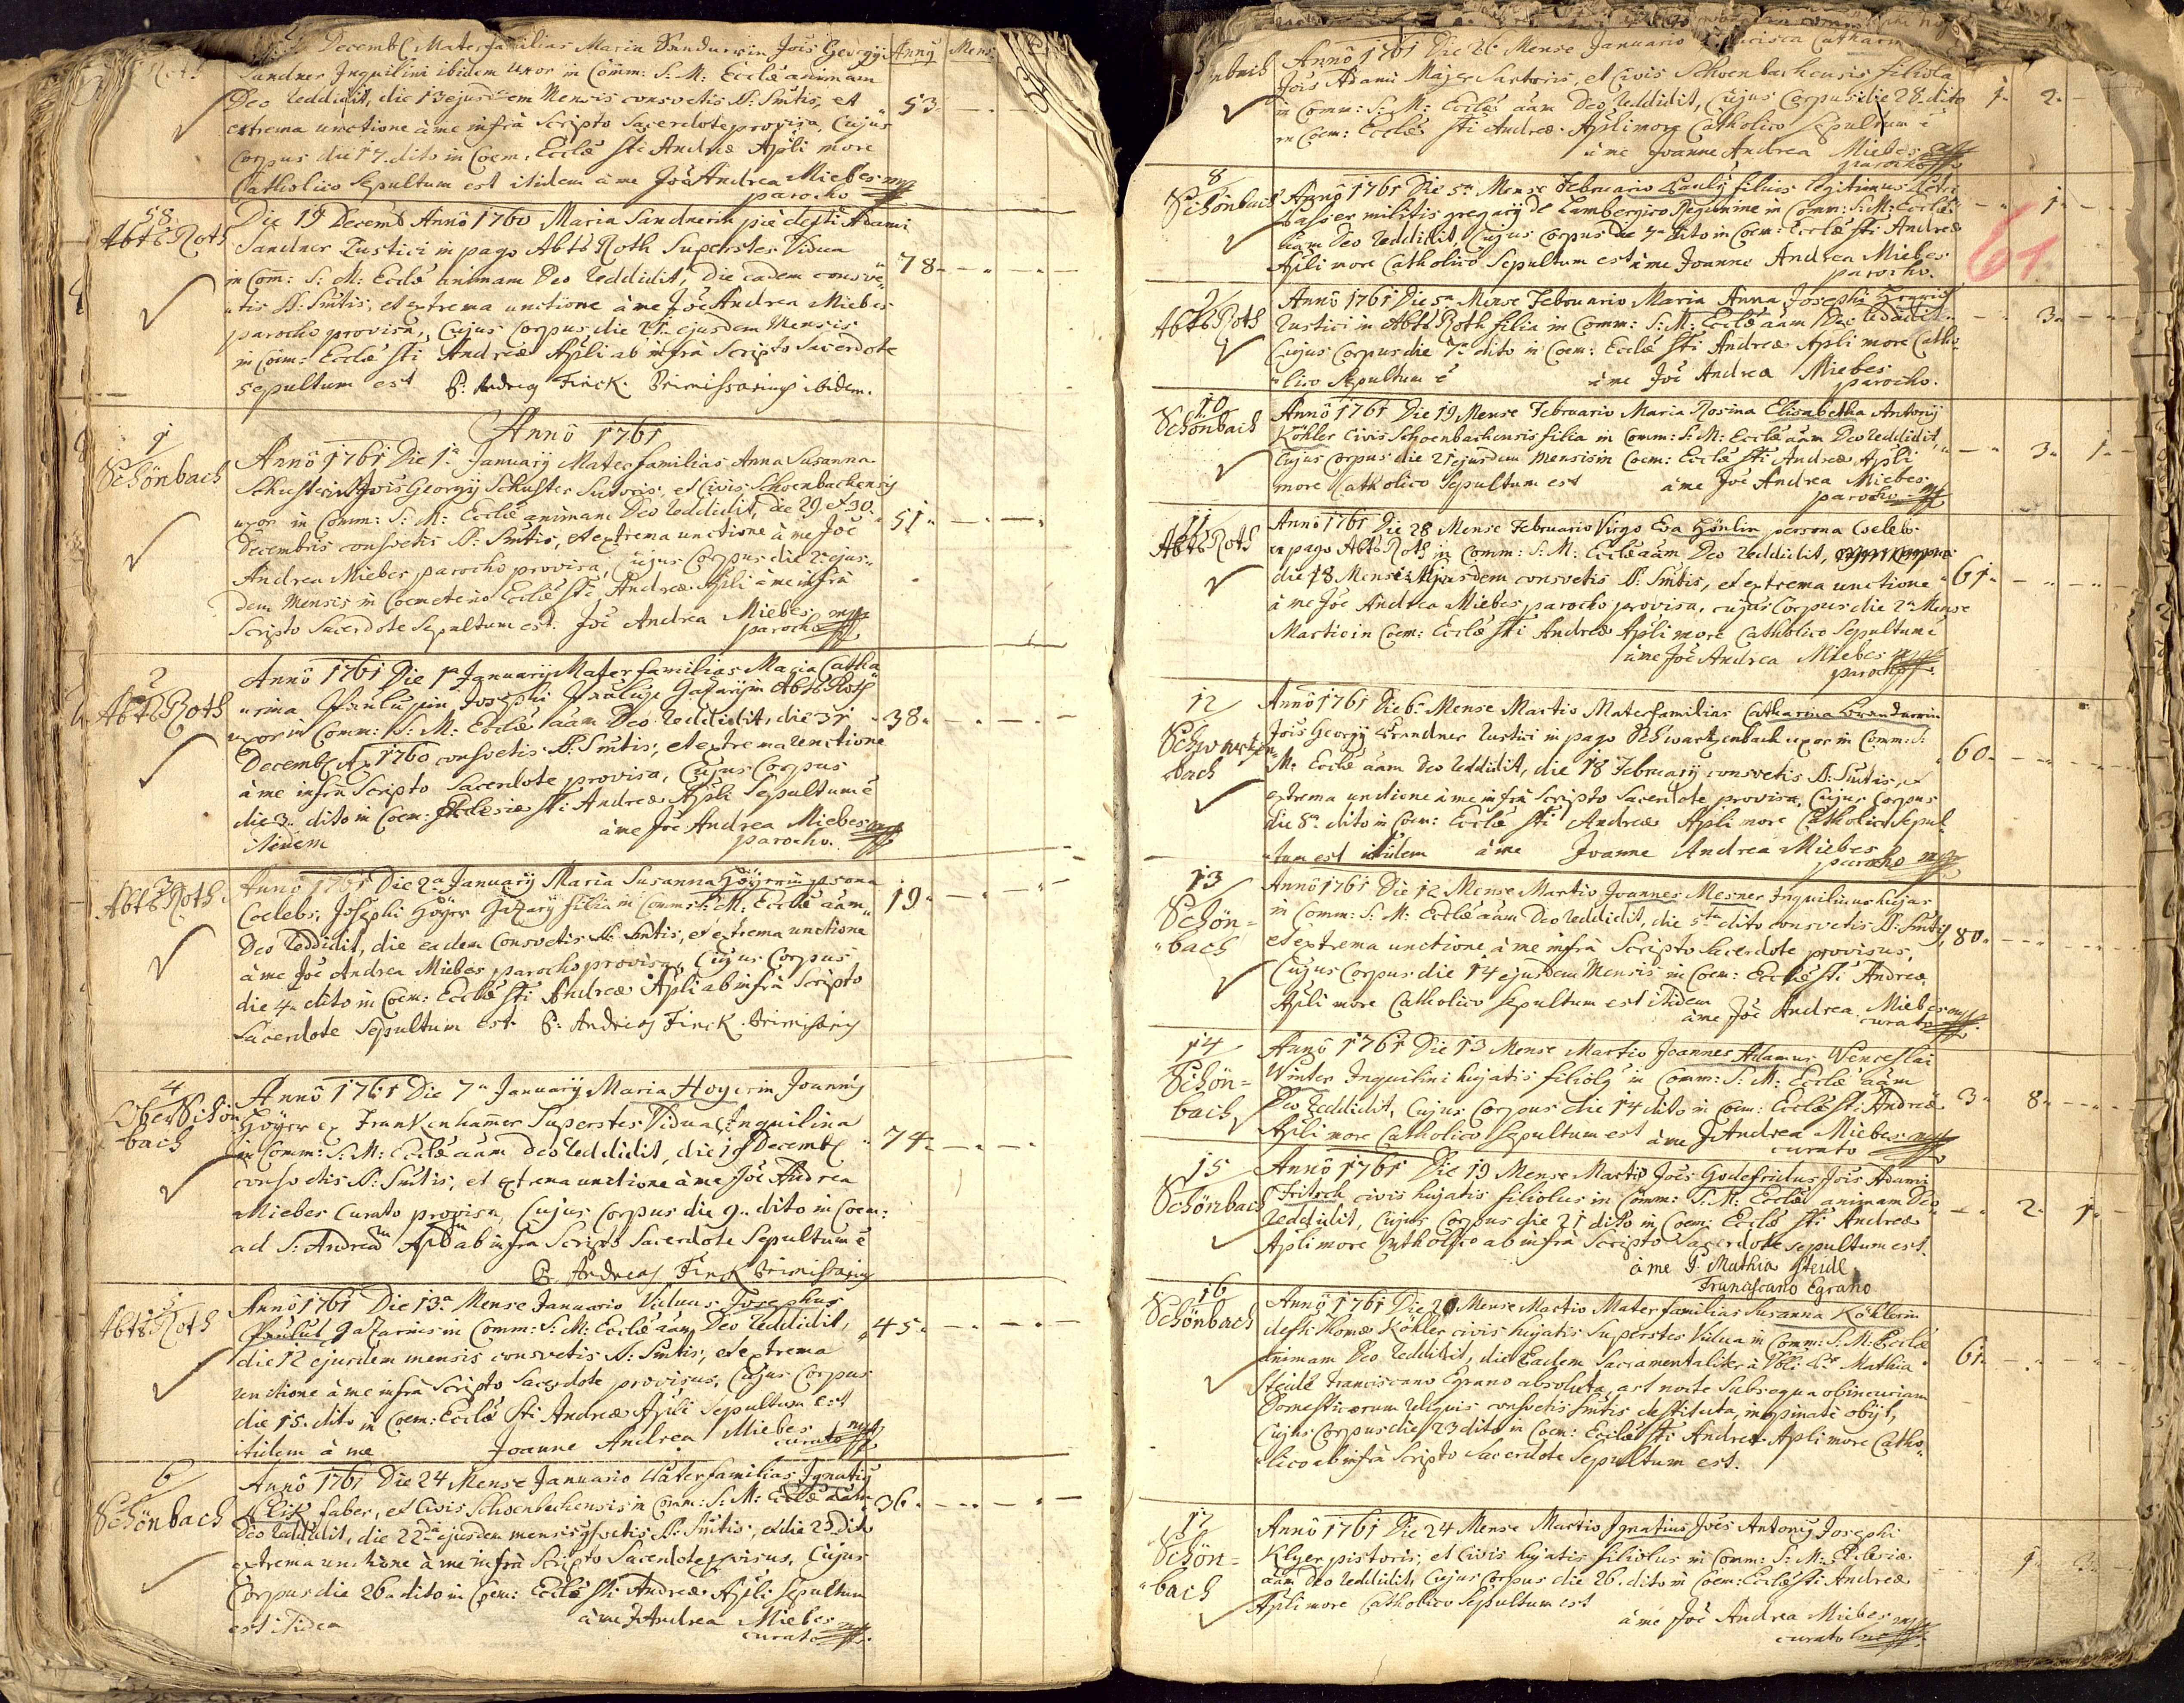 Decemb Materfamilias Maria Sandnerin Jois Georgij
Anny Mens
Sandner Inquilini ibidem uxor in Comm: S: M: Ecclæ animam
Deo reddidit, die 13 ejusdem Mensis consvetis S: Smtis, et
53
extrema unctione à me infrà Scripto Sacerdote provisa, Cujus
Corpus die 17. dito in Coem: Ecclæ Sti Andreæ Apli more
Catholico Sepultum est itidem à me Joe Andrea Miebes mp
parocho
58
Abts Roth
Die 19 Decemb Annô 1760 Maria Sandnerin piè defti Adami
Sandner Rustici in pago Abts Roth Superstes Vidua
in Com: S: M: Ecclæ animam Deo reddidit, Die eadem consve
78
tis S: Smtis, et extrema unctione à me Joe Andrea Miebes
parocho provisa, Cujus Corpus die 21 ejusdem Mensis
in Coem: Ecclæ Sti Andreæ Apli ab infrà Scripto Sacerdote
sepultum est P: Andreas Finck Primissarius ibidem.
Annô 1761
1
Schönbach
Annô 1761 Die 1a January Materfamilias Anna Susanna
Schusterin Jois Georgij Schuster Sutoris, et Civis Schoenbachensis
uxor in Comm: S: M: Ecclæ animam Deo reddidit, die 29 et 30
51
Decembris consvetis S: Smtis, et extrema unctione à me Joe
Andrea Miebes parocho provisa, Cujus Corpus die 2 ejus
dem Mensis in Coemeterio Ecclæ Sti Andreæ Apli à me infrà
Scripto Sacerdote Sepultum est. Joe Andrea Miebes mp
parocho
2
Abts Roth
Anno 1761 Die 1a January Materfamilias Maria Catha
rina Josephi in Abts Roth
uxor in Comm: S: M: Ecclæ aam Deo reddidit, die 31
38
Decemb Ao 1760 consvetis S: Smtis, et extrema unctione
à me infrà Scripto Sacerdote provisa, Cujus Corpus
die 3 dito in Coem: Ecclesiæ Sti Andreæ Apli Sepultum è
itidem à me Joe Andrea Miebes mp
parocho.
3
Abts Roth
Annô 1761 Die 2a January Maria Susanna Höyerin psona
Coelebs, Josephi Höyer Gazarij filia in Comm: S: M: Ecclæ aam
19
Deo reddidit, die eadem Consvetis S: Smtis, et extrema unctione
à me Joe Andrea Miebes parocho provisa, Cujus Corpus
die 4 dito in Coem: Ecclæ Sti Andreæ Apli ab infrà Scripto
Sacerdote Sepultum est P: Andreas Finck Primissarius
4
Ober Schön
bach
Annô 1761 Die 7a January Maria Hoyerin Joannis
Höyer ex Frankenhamer Superstes Vidua Inquilina
in Comm: S: M: Ecclæ aam Deo reddidit, die 19 Decemb
74
consvetis S: Smtis, et extrema unctione à me Joe Andrea
Miebes Curato provisa, Cujus Corpus die 9 dito in Coem:
ad S: Andream Aplm ab infra Scripto Sacerdote Sepultum è
P. Andreas Finck Primissarius
5
Abts Roth
Annô 1761 Die 13a Mense Januario Viduus Josephus
Gazarius in Comm: S: M: Ecclæ aam Deo reddidit,
45
die 12 ejusdem mensis consvetis S: Smtis, et extrema
unctione à me infrà Scripto Sacerdote provisus, Cujus Corpus
die 15. dito in Coem: Ecclæ Sti Andreæ Apli Sepultum est
itidem à me Joanne Andrea Miebes mp
curato
6
Schönbach
Annô 1761 Die 24 Mense Januario Paterfamilias Ignatius
faber, et Civis Schoenbachensis in Comm: S: M: Ecclæ aam
36
Deo reddidit, die 22da ejusdem mensis consvetis S: Smtis, et die 23 dito
extrema unctione à me infrà Scripto Sacerdote provisus, Cujus
Corpus die 26 dito in Coem: Ecclæ Sti Andreæ Apli Sepultum
est itidem à me J Andrea Miebes mp
curato
nbach
Annô 1761 Die 26 Mense Januario Francisca Catharin
Jois Adami Majer Sartoris, et Civis Schoenbachensis filiola
1 2
in Comm: S: M: Ecclæ aam Deo reddidit, Cujus Corpus die 28 dito
in Coem: Ecclæ Sti Andreæ Apli more Catholico Sepultum è
à me Joanne Andrea Miebes mp
parocho
8
Schönbach
Annô 1761 Die 5a Mense Februario Paulus filius legitimus Petri
militis gregarij de Lambergico Regimine in Comm: S: M: Ecclæ
1
61
aam Deo reddidit, Cujus Corpus die 7a dito in Coem: Ecclæ Sti Andreæ
Apli more Catholico Sepultum est à me Joanne Andrea Miebes
parocho.
9
Abts Roth
Annô 1761 Die 5a Mense Februario Maria Anna Josephi
Rustici in Abts Roth filia in Comm: S: M: Ecclæ aam Deo reddidit
3
Cujus Corpus die 7a dito in Coem: Ecclæ Sti Andreæ Apli more Catho
lico Sepultum è à me Joe Andrea Miebes
parocho.
10
Schönbach
Annô 1761 Die 19 Mense Februario Maria Rosina Elisabetha Antonij
Köhler Civis Schoenbachensis filia in Comm: S: M: Ecclæ aam Deo reddidit,
3 1
Cujus Corpus die 21 ejusdem Mensis in Coem: Ecclæ Sti Andreæ Apli
more Catholico Sepultum est à me Joe Andrea Miebes
parocho mp
11
Abts Roth
Annô 1761 Die 28 Mense Februario Virgo Eva Hönlin persona Coelebs
in pago Abts Roth in Comm: S: M: Ecclæ aam Deo reddidit,
die 18 Mensis Ejusdem consvetis S: Smtis, et extrema unctione
61
à me Joe Andrea Miebes parocho provisa, cujus Corpus die 2a Mense
Martio in Coem: Ecclæ Sti Andreæ Apli more Catholico Sepultum è
à me Joe Andrea Miebes mp
parocho
12
Schwartzen
bach
Anno 1761 Die 6 Mense Martio Materfamilias Catharina Brandnerin
Jois Georgij Brandner Rustici in pago Schwartzenbach uxor in Comm: S:
M: Ecclæ aam Deo reddidit, die 18 February consvetis S: Smtis, et
60
extrema unctione à me infrà Scripto Sacerdote provisa, Cujus Corpus
die 8a dito in Coem: Ecclæ Sti Andreæ Apli more Catholico Sepul
tum est itidem à me Joanne Andrea Miebes
parocho mp
13
Schön=
bach
Anno 1761 Die 12 Mense Martio Joannes Mesner Inquilinus hujas
in Comm: S: M: Ecclæ aam Deo reddidit, die 5ta dito consvetis S: Smtis,
80
et extrema unctione à me infrà Scripto Sacerdote provisus,
Cujus Corpus die 14 ejusdem Mensis in Coem: Ecclæ Sti Andreæ
Apli more Catholico Sepultum est itidem
à me Joe Andrea Miebes mp
curato
14
Schön=
bach
Annô 1761 Die 13 Mense Martio Joannes Adamus Wenceslai
Winter Inquilini hujatis filiolus in Comm: S: M: Ecclæ aam
Deo reddidit, Cujus Corpus die 14 dito in Coem: Ecclæ Sti Andreæ
3 8
Apli more Catholico Sepultum est à me J Andrea Miebes mp
curato
15
Schönbach
Annô 1761 Die 19 Mense Martio Jois Godefridus Jois Adami
Fritsch civis hujatis filiolus in Comm: S: M: Ecclæ animam Deo
reddidit, Cujus Corpus die 21 dito in Coem: Ecclæ Sti Andreæ
2 1
Apli more Catholico ab infrà Scripto Sacerdote sepultum est.
à me P. Mathia Steidl
Franciscano Egrano
16
Schönbach
Annô 1761 Die 20 Mense Martio Materfamilias Susanna Köhlerin
defti Thomæ Köhler civis hujatis Superstes Vidua in Comm: S: M: Ecclæ
animam Deo reddidit, die Eadem Sacramentaliter à P: Mathia
61
Steidl Franciscano Egrano absoluta, ast nocte Subsequa ob incuriam
Domesticorum reliquis consvetis Smtis destituta, inopinatè obijt,
Cujus Corpus die 23 dito in Coem: Ecclæ Sti Andreæ Apli more Catho
lico ab infrà Scripto Sacerdote Sepultum est.
17
Schön=
bach
Annô 1761 Die 24 Mense Martio Ignatius Jois Antonij Josephi
Klyer pistoris, et Civis hujatis filiolus in Comm: S: M: Ecclesiæ
aam Deo reddidit, Cujus Corpus die 26. dito in Coem: Ecclæ Sti Andreæ
1 3
Apli more Catholico Sepultum est
à me Joe Andrea Miebes mp
curato